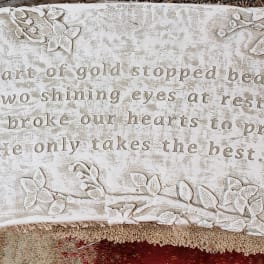 art of gold stopped bea
wo shining eyes at rest
broke our hearts to pr
e only takes the best.